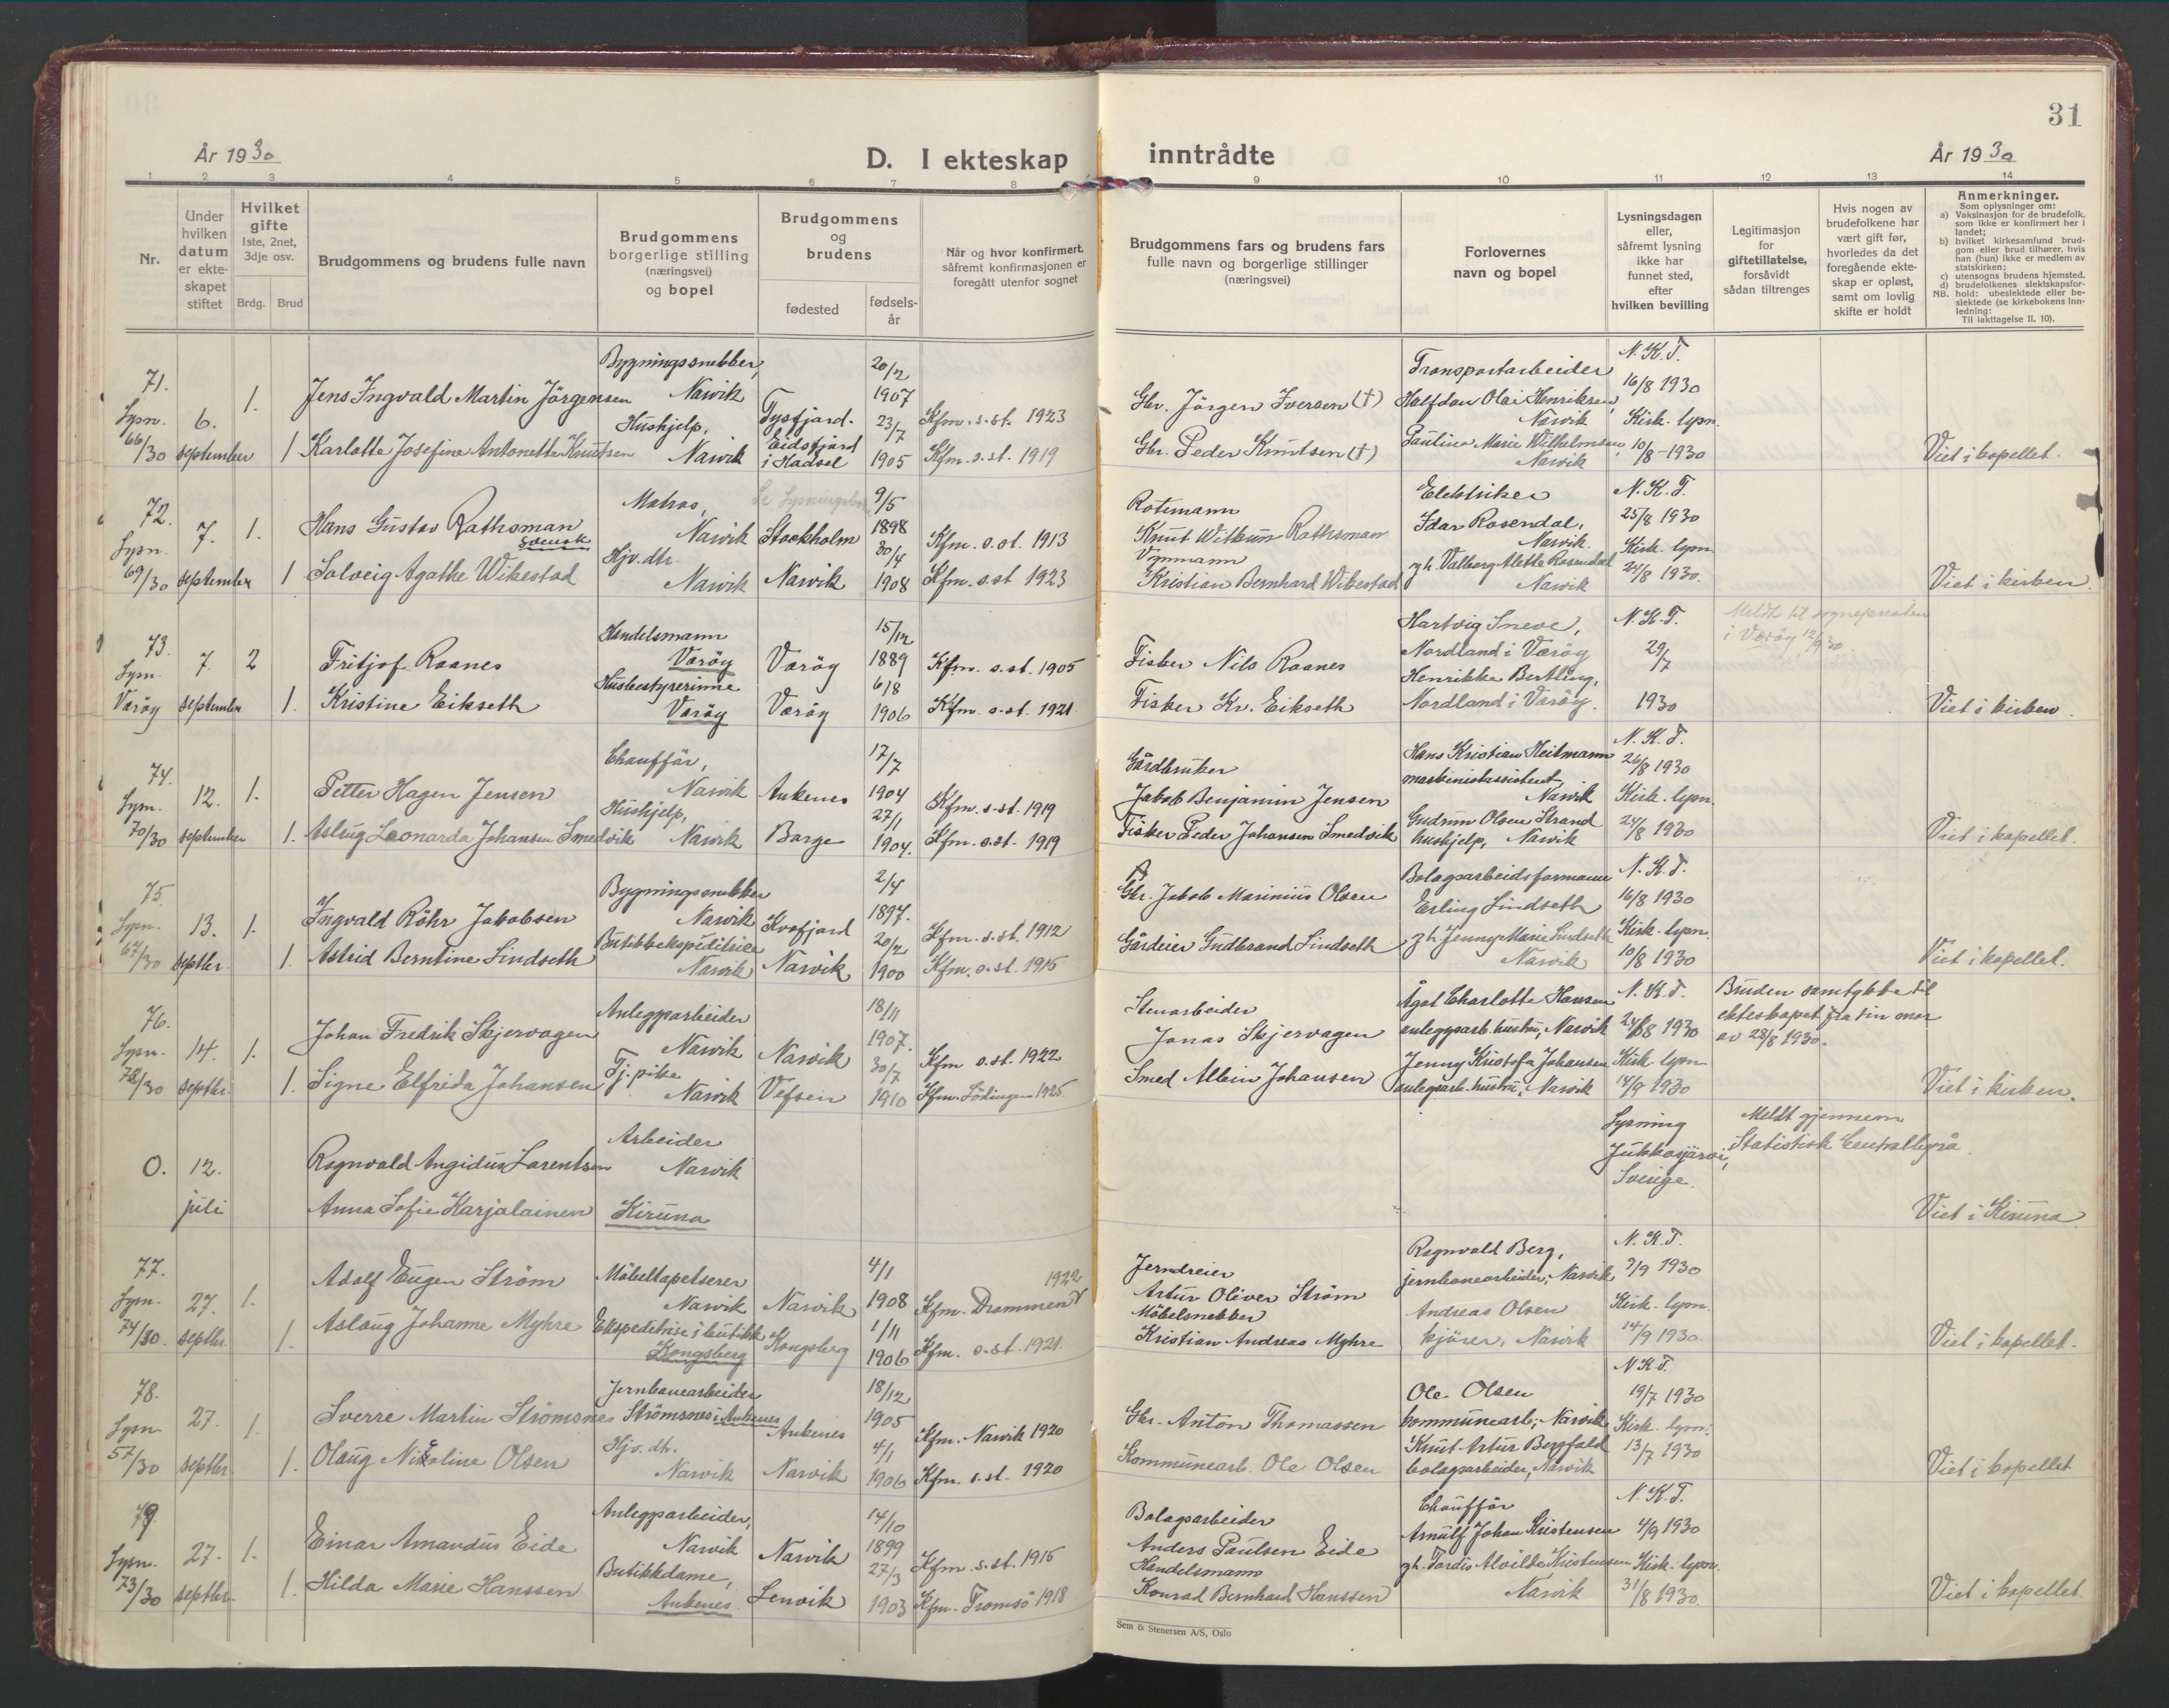 31
År 1930
D. I ekteskap
inntrådte
År 1930
1 2 3 4 5 6 7 8 9 10 11 12 13 14
Nr.
Under
hvilken
datum
er ekte-
skapet
stiftet
Hvilket
gifte
1ste, 2net,
3dje osv.
Brdg. Brud
Brudgommens og brudens fulle navn
Brudgommens
borgerlige stilling
(næringsvei)
og bopel
Brudgommens
og
brudens
fødested
fødsels-
år
Når og hvor konfirmert,
såfremt konfirmasjonen er
foregått utenfor sognet
Brudgommens fars og brudens fars
fulle navn og borgerlige stillinger
(næringsvei)
Forlovernes
navn og bopel
Lysningsdagen
eller,
såfremt lysning
ikke har
funnet sted,
efter
hvilken bevilling
Legitimasjon
for
giftetillatelse,
forsåvidt
sådan tiltrenges
Hvis nogen av
brudefolkene har
vært gift før,
hvorledes da det
foregående ekte-
skap er opløst,
samt om lovlig
skifte er holdt
Anmerkninger.
Som oplysninger om:
a) Vaksinasjon for de brudefolk,
som ikke er konfirmert her i
landet;
b) hvilket kirkesamfund brud-
gom eller brud tilhører, hvis
han (hun) ikke er medlem av
statskirken;
c) utensogns brudens hjemsted.
d) brudefolkenes slektskapsfor-
NB. hold: ubeslektede eller be-
slektede (se kirkebokens inn-
ledning:
Til iakttagelse II, 10).
71.
Lysn.
66/30
6.
september
1.
1
Jens Ingvald Martin Jörgensen
Karlotte Josefine Antonette Knutsen
Bygningssnekker,
Narvik
Hushjelp,
Narvik
Tysfjord.
Eidsfjord
i Hadsel
20/12
1907
23/7
1905
Kfm. s. st. 1923
Kfm. s. st. 1919
Gbr. Jörgen Iversen (†)
Gbr. Peder Knutsen (†)
Transportarbeider
Halfdan Olai Henriksen,
Narvik
Pauline Marie Wilhelmsen,
Narvik
N. K. T.
16/8 1930
Kirk. lysn.
10/8-1930
Viet i kapellet.
72.
Lysn.
69/30
7.
september
1.
1
Hans Gustav Rathsman
svensk
Solveig Agathe Wikestad
Matros,
Narvik
Hjv. dtr.
Narvik
Se lysningsbok
Stockholm
Narvik
9/5
1898
30/4
1908
Kfm. s. st. 1913
Kfm. s. st 1923
Rotemann
Knut Rathsman
Vognmann
Kristian Bernhard Wikestad
Elektriker
Idar Rosendal,
Narvik.
gh. Valborg Alette Rosendal
Narvik
N. K. T.
25/8 1930
Kirk. lysn.
24/8 1930.
Viet i kirken.
73.
Lysn.
Væröy
7
september
2
1.
Fritjof Raanes
Kristine Eikseth
Handelsmann
Væröy
Husbestyrerinne
Væröy
Væröy
Væröy
15/12
1889
6/8
1906
Kfm. s. st. 1905
Kfm. s. st. 1921
Fisker Nils Raanes
Fisker Kr. Eikseth
Hartvig Sneve,
Nordland i Væröy
Henrikke Bertling,
Nordland i Væröy.
N. K. T.
29/7
1930
Meldt til sogneprester
i Væröy 12/9 1930.
Viet i kirken.
74.
Lysn.
70/30
12.
september
1.
1.
Petter Hagen Jensen
Aslaug Leonarda Johansen Smedvik
Chaufför,
Narvik
Hushjelp,
Narvik
Ankenes
Borge
17/7
1904
27/1
1904.
Kfm. s. st. 1919
Kfm. s. st. 1919
Gårdbruker
Jakob Benjamin Jensen
Fisker Peder Johansen Smedvik
Hans Kristian Heitmann
maskinistassistent
Narvik
Gudrun Olsen Strand
hushjelp, Narvik
N. K. T.
26/8 1930
Kirk. lysn.
24/8 1930
Viet i kapellet.
75.
Lysn.
67/30
13.
septbr.
1.
1.
Ingvald Röhr Jakobsen
Astrid Berntine Lindseth
Bygningssnekker
Narvik
Butikkekspeditrise
Narvik
Kvæfjord
Narvik
2/4
1897.
20/2
1900
Kfm. s. st. 1912
Kfm. s. st. 1915
Gbr. Jakob Marinius Olsen
Gårdeier Gudbrand Lindseth
Bolagsarbeidsformann
Erling Lindseth
gh Jenny Marie Lindseth
Narvik
N. K. T.
16/8 1930
Kirk. lysn.
10/8 1930
Viet i kapellet.
76.
Lysn.
72/30
14.
septbr.
1.
1.
Johan Fredrik Skjervagen
Signe Elfrida Johansen
Anleggsarbeider
Narvik
Tj. pike
Narvik
Narvik
Vefsen
18/11
1907.
30/7
1910
Kfm s. st. 1922
Kfm. Lödingen 1925
Stenarbeider
Jonas Skjervagen
Smed Albin Johansen
Ågot Charlotte Hansen
anleggsarb. hustru, Narvik
Jenny Kristofa Johansen
anleggsarb. hustru, Narvik
N. K. T.
24/8 1930
Kirk. lysn.
14/9 1930
Bruden samtykke til
ekteskapet fra sin mor
av 28/8 1930.
Viet i kirken.
0.
12.
juli
Ragnvald Angidus Larentsen
Anna Sofie Karjalainen
Arbeider
Narvik
Kiruna
Lysning
Jukkasjärvi,
Sverige.
Meldt gjennem
Statistisk Centralbyrå.
Viet i Kiruna
77.
Lysn.
74/30.
27.
septbr.
1.
1.
Adolf Eugen Ström
Aslaug Johanne Myhre
Möbeltapetserer
Narvik
Ekspeditrise i butikk
Kongsberg
Narvik
Kongsberg
4/1
1908
1/11
1906
1922
Kfm. Drammen
Kfm. s. st. 1921
Jerndreier
Artur Oliver Ström
Möbelsnekker
Kristian Andreas Myhre
Ragnvald Berg,
jernbanearbeider, Narvik
Andreas Olsen
kjörer, Narvik
N. K. T.
9/9 1930
Kirk. lysn.
14/9 1930.
Viet i kapellet.
78.
Lysn
57/30
27.
septbr
1.
1.
Sverre Martin Strömsnes
Olaug Nikoline Olsen
Jernbanearbeider
Strömsnes i Ankenes
Hjv. dtr.
Narvik
Ankenes
Narvik
18/12
1905
4/1
1906
Kfm. Narvik 1920
Kfm. s. st. 1920
Gbr. Anton Thomassen
Kommunearb. Ole Olsen
Ole Olsen
kommunearb., Narvik
Knut Artur Bergfald
bolagsarbeider, Narvik
N. K. T.
19/7 1930
Kirk. lysn.
13/7 1930
Viet i kapellet
79
Lysn.
73/30
27.
septbr.
1.
1.
Einar Amandus Eide
Hilda Marie Hanssen
Anleggsarbeider,
Narvik
Butikkdame,
Ankenes
Narvik
Lenvik
14/10
1899
27/3
1903
Kfm. s. st. 1915
Kfm. Tromsö 1918
Bolagsarbeider
Anders Paulsen Eide
Handelsmann
Konrad Bernhard Hanssen
Chaufför
Arnulf Johan Kristensen
gh. Tordis Alvilde Kristensen
Narvik
N. K. T.
4/9 1930
Kirk. lysn.
31/8 1930.
Viet i kapellet.
Sem & Stenersen A/S, Oslo